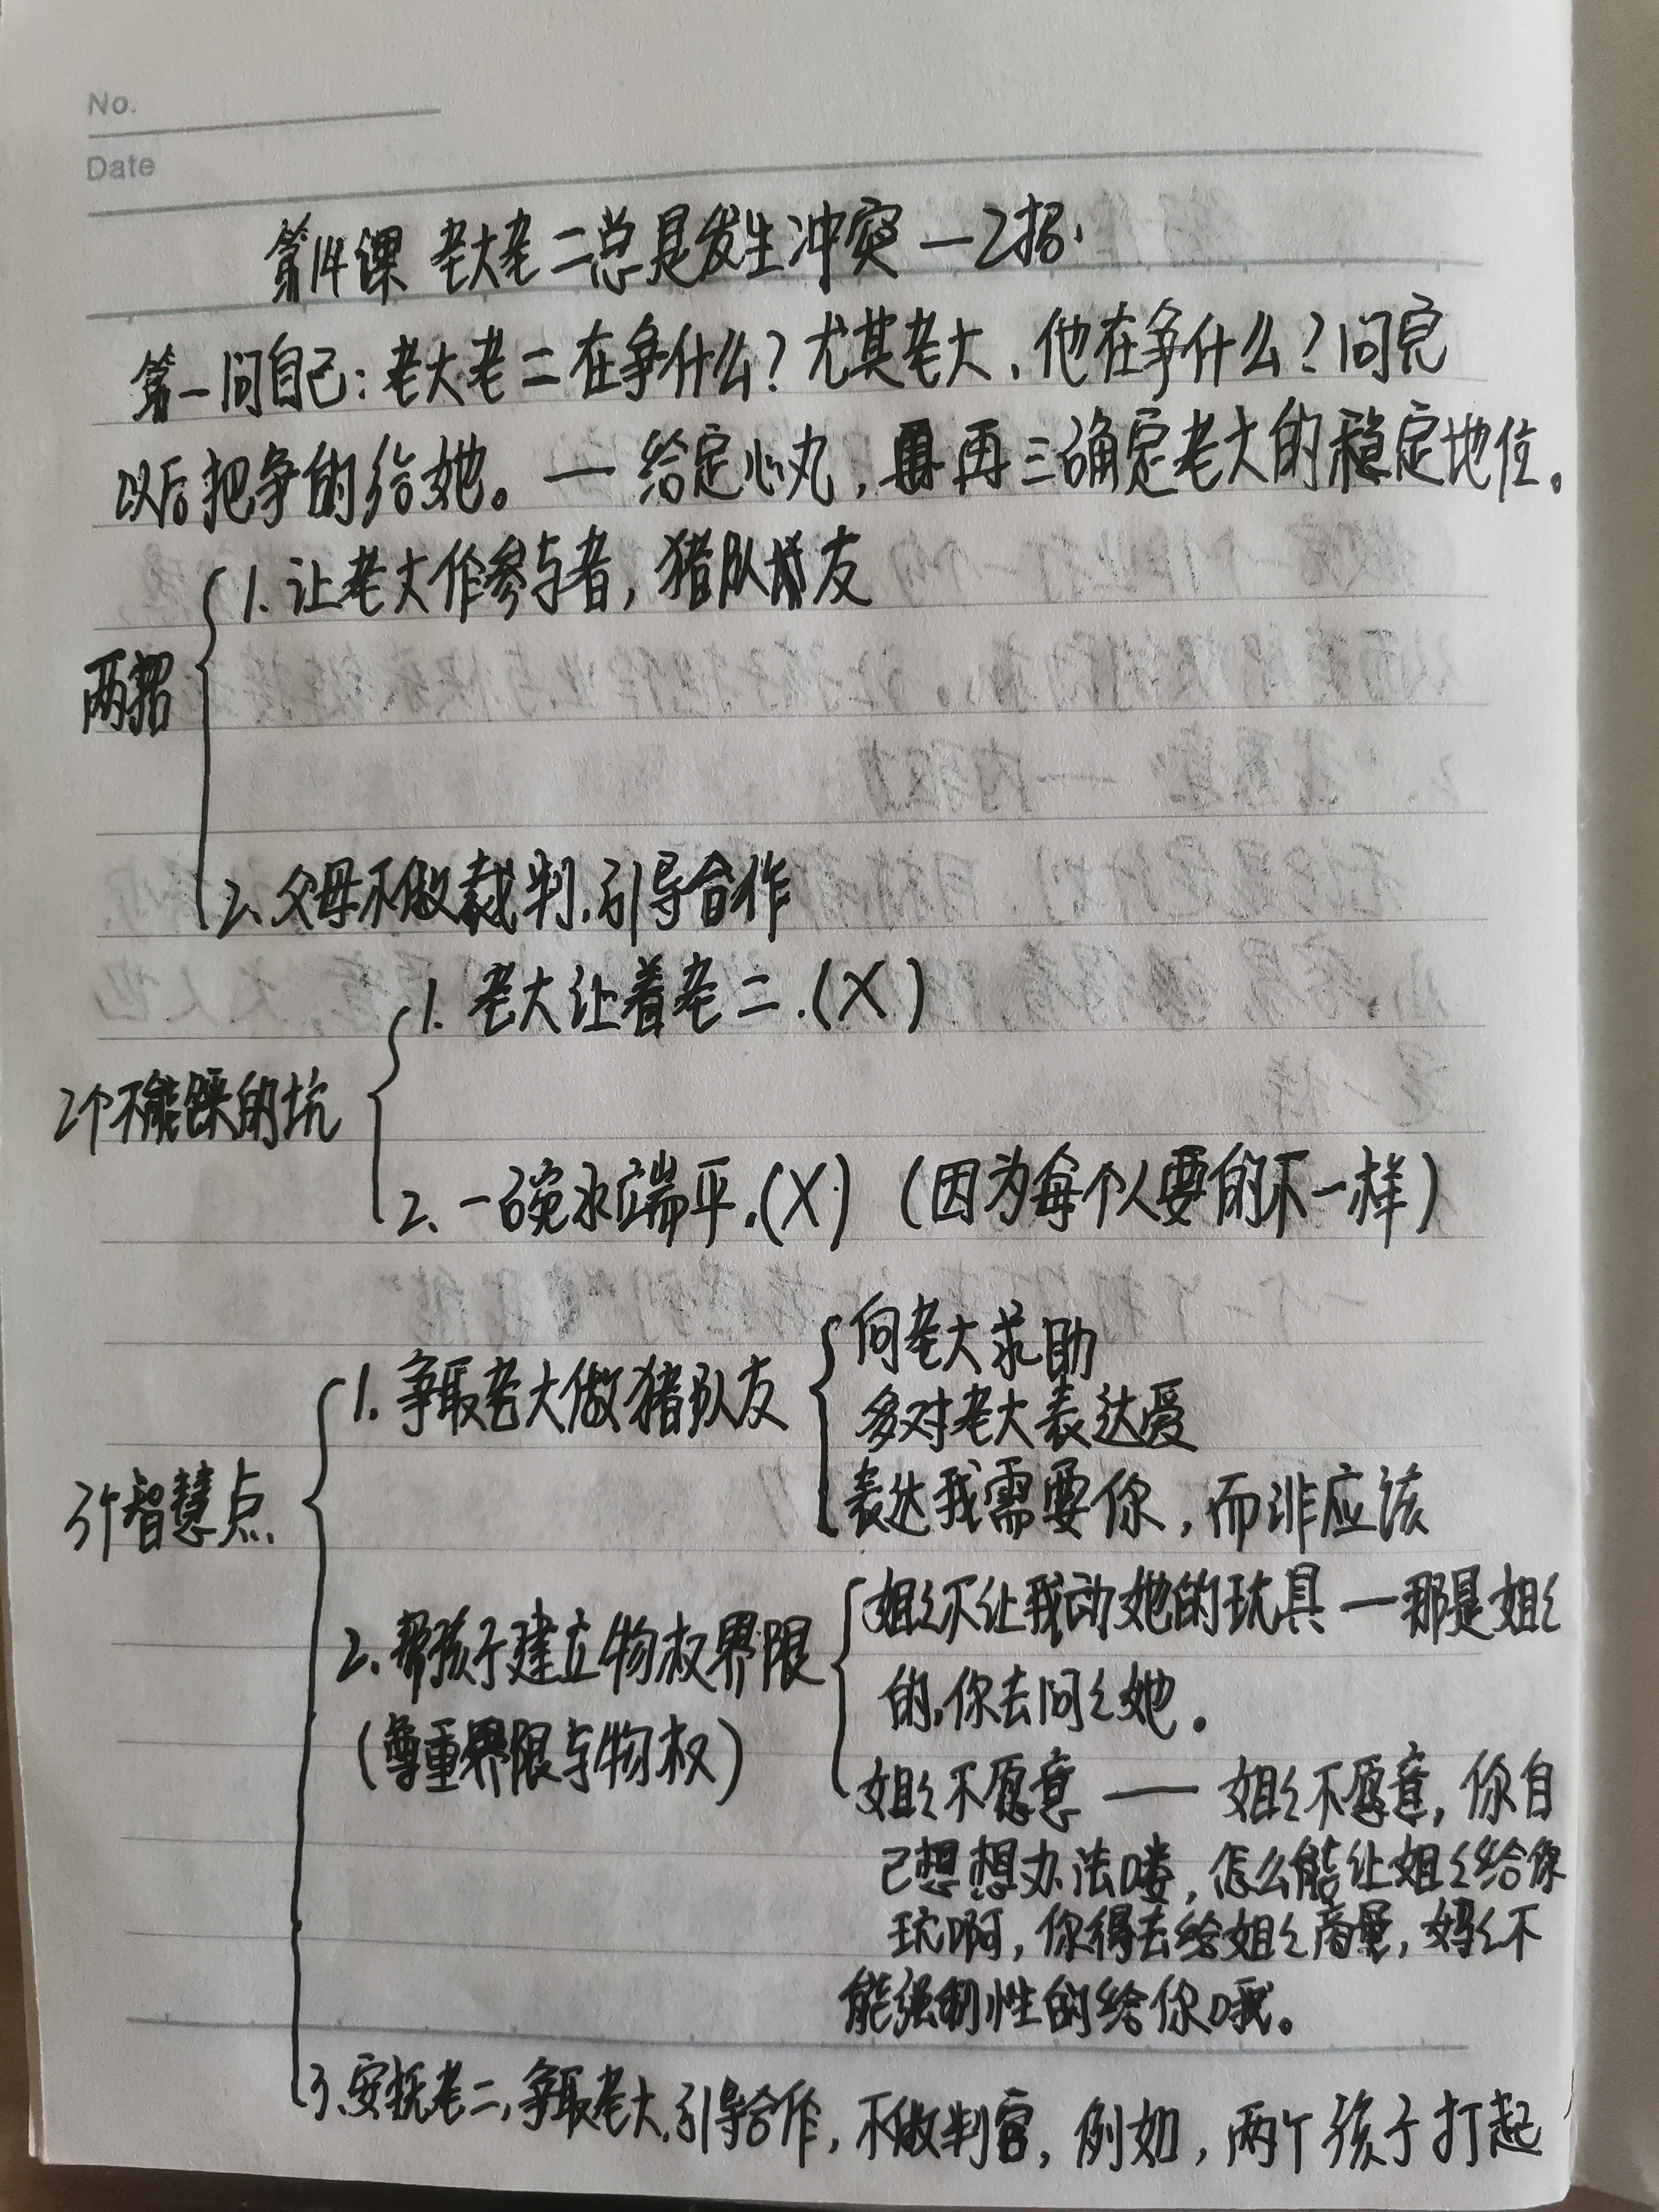 No.
Date
第14课 老大老二总是发生冲突 — 2招.
第一问自己:老大老二在争什么?尤其老大、他在争什么?问完
以后把争的给她。— 给定心丸,再三确定老大的稳定地位。
1. 让老大作参与者,猪队友
两招
2、父母不做裁判.引导合作
1. 老大让着老二.(X)
2个不能踩的坑
2、一碗水端平.(X) (因为每个人要的不一样)
向老大求助
1. 争取老大做猪队友
多对老大表达爱
3个智慧点
表达我需要你,而非应该
姐〻不让我动她的玩具 — 那是姐〻
2、帮孩子建立物权界限
的,你去问〻她。
(尊重界限与物权)
姐〻不愿意 — 姐〻不愿意,你自
己想想办法喽,怎么能让姐〻给你
玩啊,你得去给姐〻商量,妈〻不
能强制性的给你哦。
3、安抚老二,争取老大.引导合作,不做判官,例如,两个孩子打起